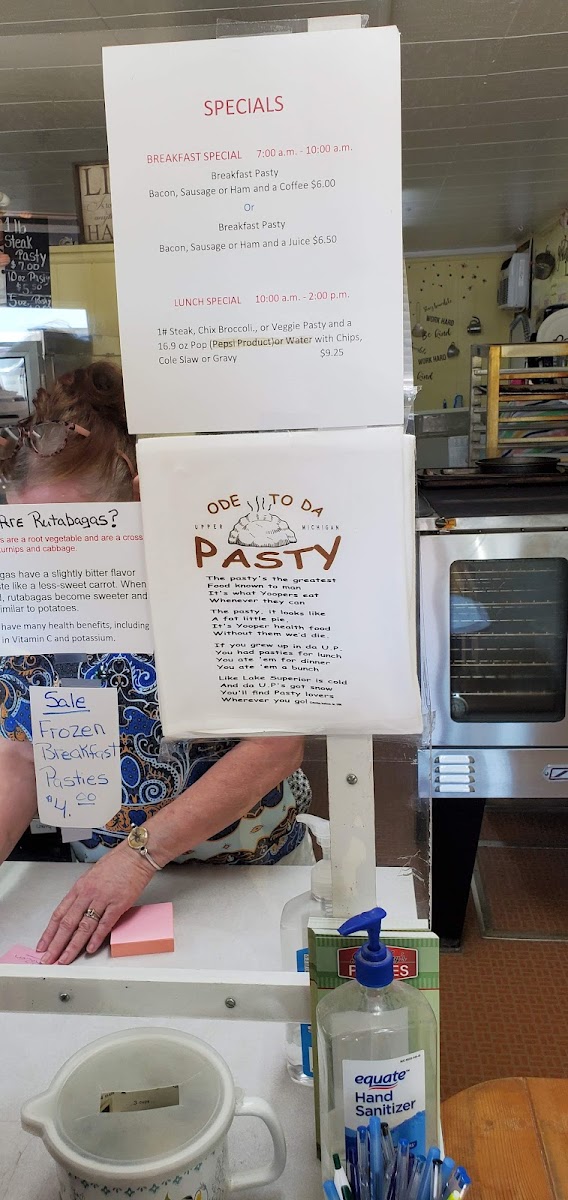 SPECIALS
BREAKFAST SPECIAL 7:00 a.m. - 10:00 a.m.
Breakfast Pasty
Bacon, Sausage or Ham and a Coffee $6.00
Or
Breakfast Pasty
Bacon, Sausage or Ham and a Juice $6.50
LUNCH SPECIAL 10:00 a.m. - 2:00 p.m.
1# Steak, Chix Broccoli., or Veggie Pasty and a
16.9 oz Pop (Pepsi Product)or Water with Chips,
Cole Slaw or Gravy $9.25
1lb
Steak
Pasty
$7.00
10oz Pasty
$5.50
5oz
WORK HARD
Be kind
WORK HARD
kind
ODE TO DA
UPPER MICHIGAN
PASTY
The pasty's the greatest
Food known to man
It's what Yoopers eat
Whenever they can
The pasty, it looks like
A fat little pie
It's Yooper health food
Without them we'd die.
If you grew up in da U.P.
You had pasties for lunch
You ate 'em for dinner
You ate 'em a bunch
Like Lake Superior is cold
And da U.P.'s got snow
You'll find Pasty lovers
Wherever you go!
Are Rutabagas?
s are a root vegetable and are a cross
turnips and cabbage.
gas have a slightly bitter flavor
te like a less-sweet carrot. When
, rutabagas become sweeter and
imilar to potatoes.
have many health benefits, including
in Vitamin C and potassium.
Sale
Frozen
Breakfast
Pasties
$4.00
equate
Hand
Sanitizer